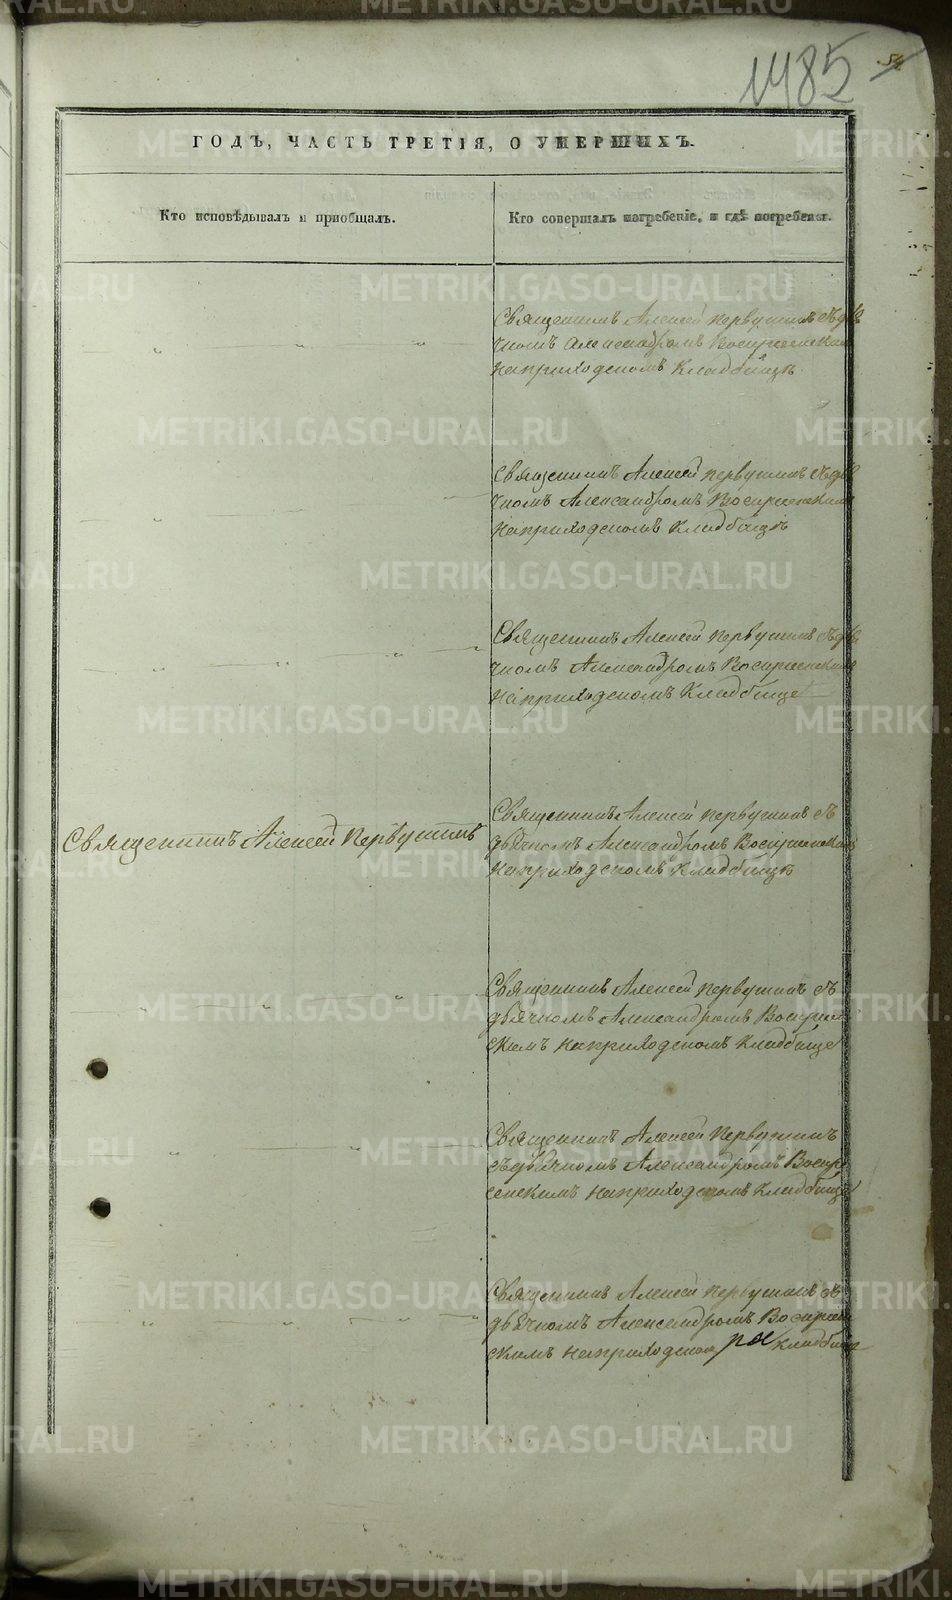 1485
54
ГОДЪ, ЧАСТЬ ТРЕТІЯ, О УМЕРШИХЪ.
Кто исповѣдывалъ и пріобщалъ.
Кто совершалъ погребеніе, и гдѣ погребены.
Священникъ Алексей Первушинъ съ дья
чкомъ Александромъ Воскресенскимъ
на приходскомъ кладбищѣ
Священникъ Алексей Первушинъ съ дья
чкомъ Александромъ Воскресенскимъ
на приходскомъ кладбищѣ
Священникъ Алексей Первушинъ съ дья
чкомъ Александромъ Воскресенскимъ
на приходскомъ кладбище
Священникъ Алексей Первушинъ
Священникъ Алексей Первушинъ съ
дьячкомъ Александромъ Воскресенскимъ
на приходскомъ кладбищѣ
Священникъ Алексей Первушинъ съ
дьячкомъ Александромъ Воскресен
скимъ на приходскомъ кладбище
Священникъ Алексей Первушинъ
съ дьячкомъ Александромъ Воскре
сенскимъ на приходскомъ кладбище
Священникъ Алексей Первушинъ съ
дьячкомъ Александромъ Воскресен
скимъ на приходском кладбище
METRIKI.GASO-URAL.RU